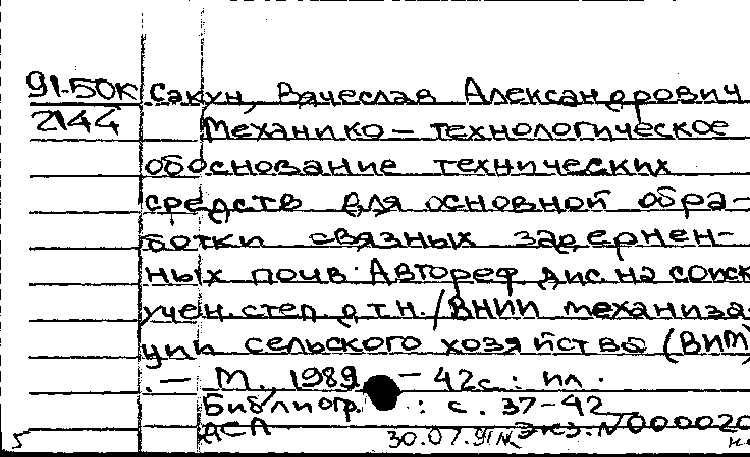 91-50К Сакун, Вячеслав Александрович
2144 Механико-технологическое
обоснование технических
средств для основной обра-
ботки связных задернен-
ных почв: Автореф. дис. на соиск.
учен. степ. д.т.н. / ВНИИ механиза-
ции сельского хозяйства (ВИМ)
. - М., 1989. - 42с.: ил.
Библиогр.: с. 37-42
ДСП
5 30.07.91 Экз. N 000020